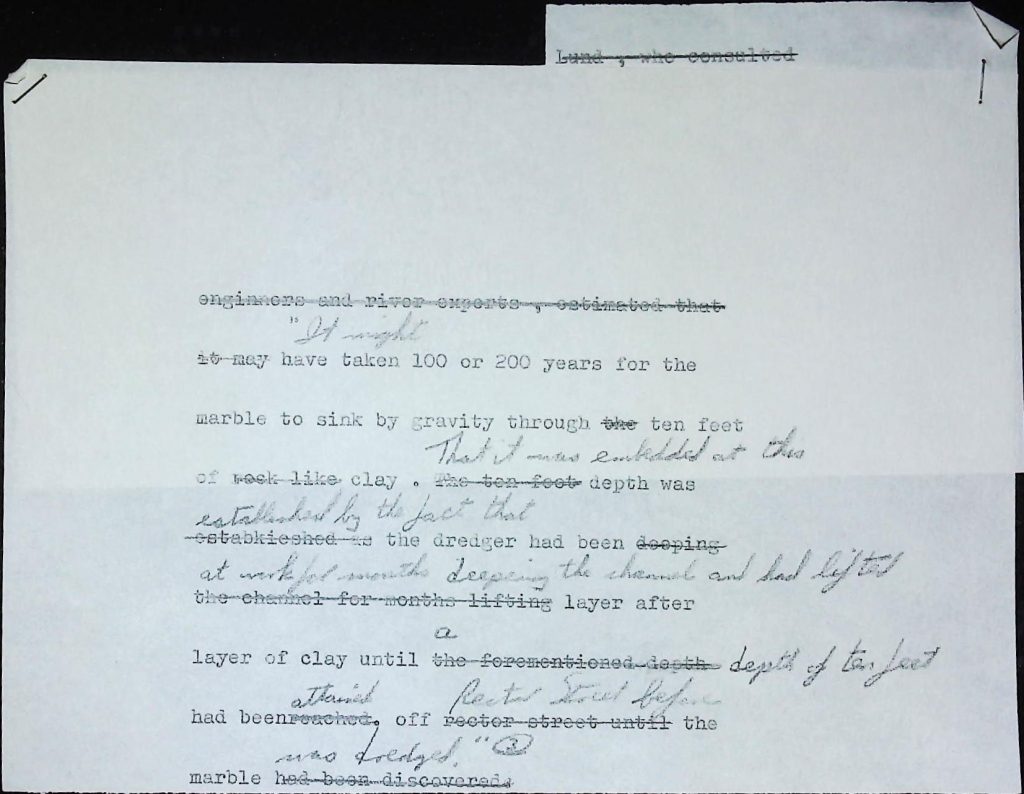 Lund , who consulted
enginners and river experts , estimated that
"It might
it may have taken 100 or 200 years for the
marble to sink by gravity through the ten feet
That it was embedded at this
of rock like clay . The ten feet depth was
established by the fact that
estabkieshed as the dredger had been deeping
at work for months deepening the channel and had lifted
the channel for months lifting layer after
a
layer of clay until the forementioned depth depth of ten feet
attained Rector Street before
had beenreached, off rector street until the
was dredged." 3
marble had been discovered.